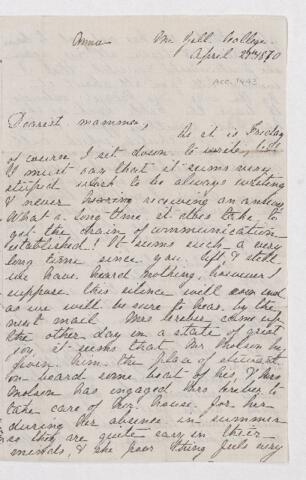 Anna
McGill College
April 29th 1870
Acc. 1443
Dearest mamma,
As it is Friday
of course I sit down to write, but
I must say that it seems very
stupid work to be always writing
& never receiving an answer
What a long time it does take to
get the chain of communication
established! It seems such a very
long time since you left & still
we have heard nothing, however I
suppose this silence will end
as we will be sure to hear by the
next mail Mrs came up
the other day in a state of great
joy, it seems that Mr Molson has
given him the place of steward
on board some boat of his, & Mrs
Molson has engaged Mrs to
take care of her house for her
during her absence in summer
so they are quite easy in their
minds, & she poor thing feels very